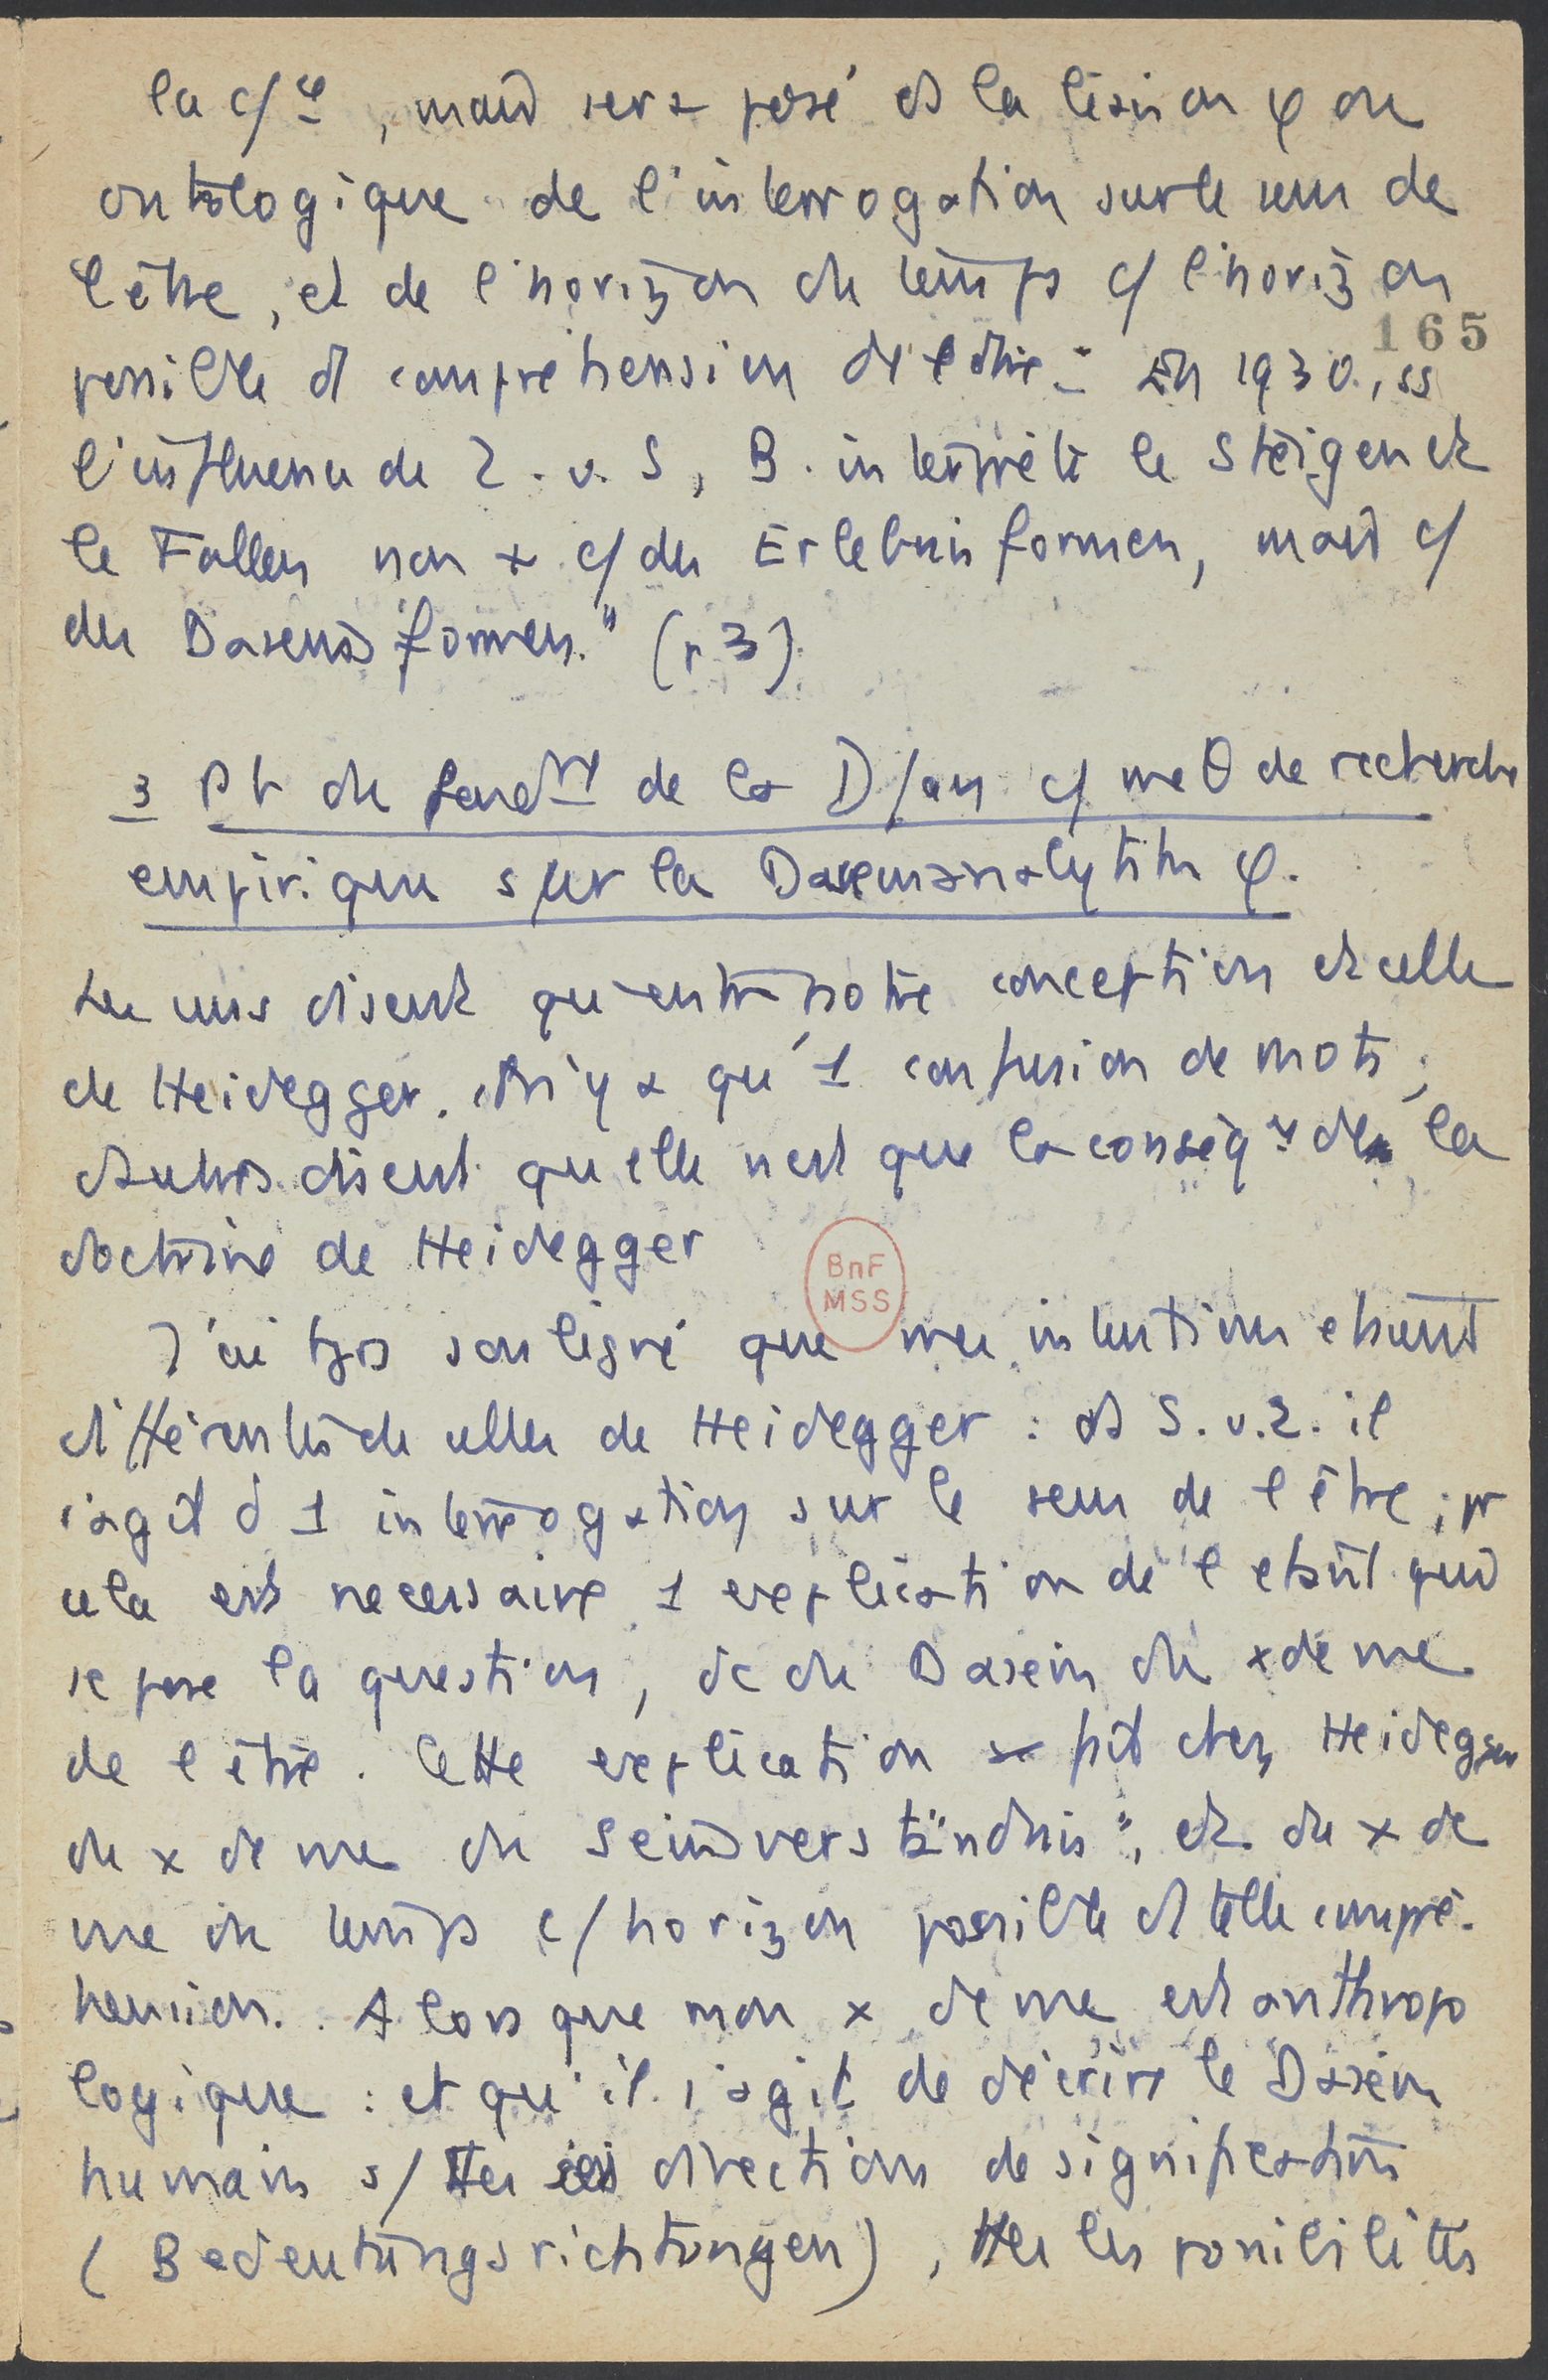 la c/φ, mais sera posé ds la liaison φ ou
ontologique de l'interrogation sur le sens de
l'être, et de l'horizon du temps c/ l'horizon
165
possible d compréhension de l'être. En 1930, ss
l'influence de Z. u. S, B. interprète le Steigen et
le Fallen non + c/ des Erlebnisformen, mais c/
des Daseinsformen." (p 3).
3 Pt de la D/an c/ meθ de recherche
empirique sur la Daseinsanalytik φ.
Les uns disent qu'entre notre conception et celle
de Heidegger. il n'y a qu'1 confusion de mots ;
d'autres disent qu'elle n'est que la conséq de la
doctrine de Heidegger
BnF
MSS
J'ai tjrs souligné que mes intentions étaient
différentes de celles de Heidegger : ds S. u. Z. il
s'agit d'1 interrogation sur le sens de l'être ; pr
cela est necessaire 1 explication de l'etant qui
se pose la question, dc du Dasein du x de me
de l'être. Cette explication se fait chez Heidegger
du x de me du Seinsverständnis", et du x de
me du temps c/ horizon possible d telle compré-
hension. Alors que mon x de me est anthropo
logique : et qu'il s'agit de décrire le Dasein
humain s/ ttes ses directions de significations
(Bedeutungsrichtungen), ttes les possibilités